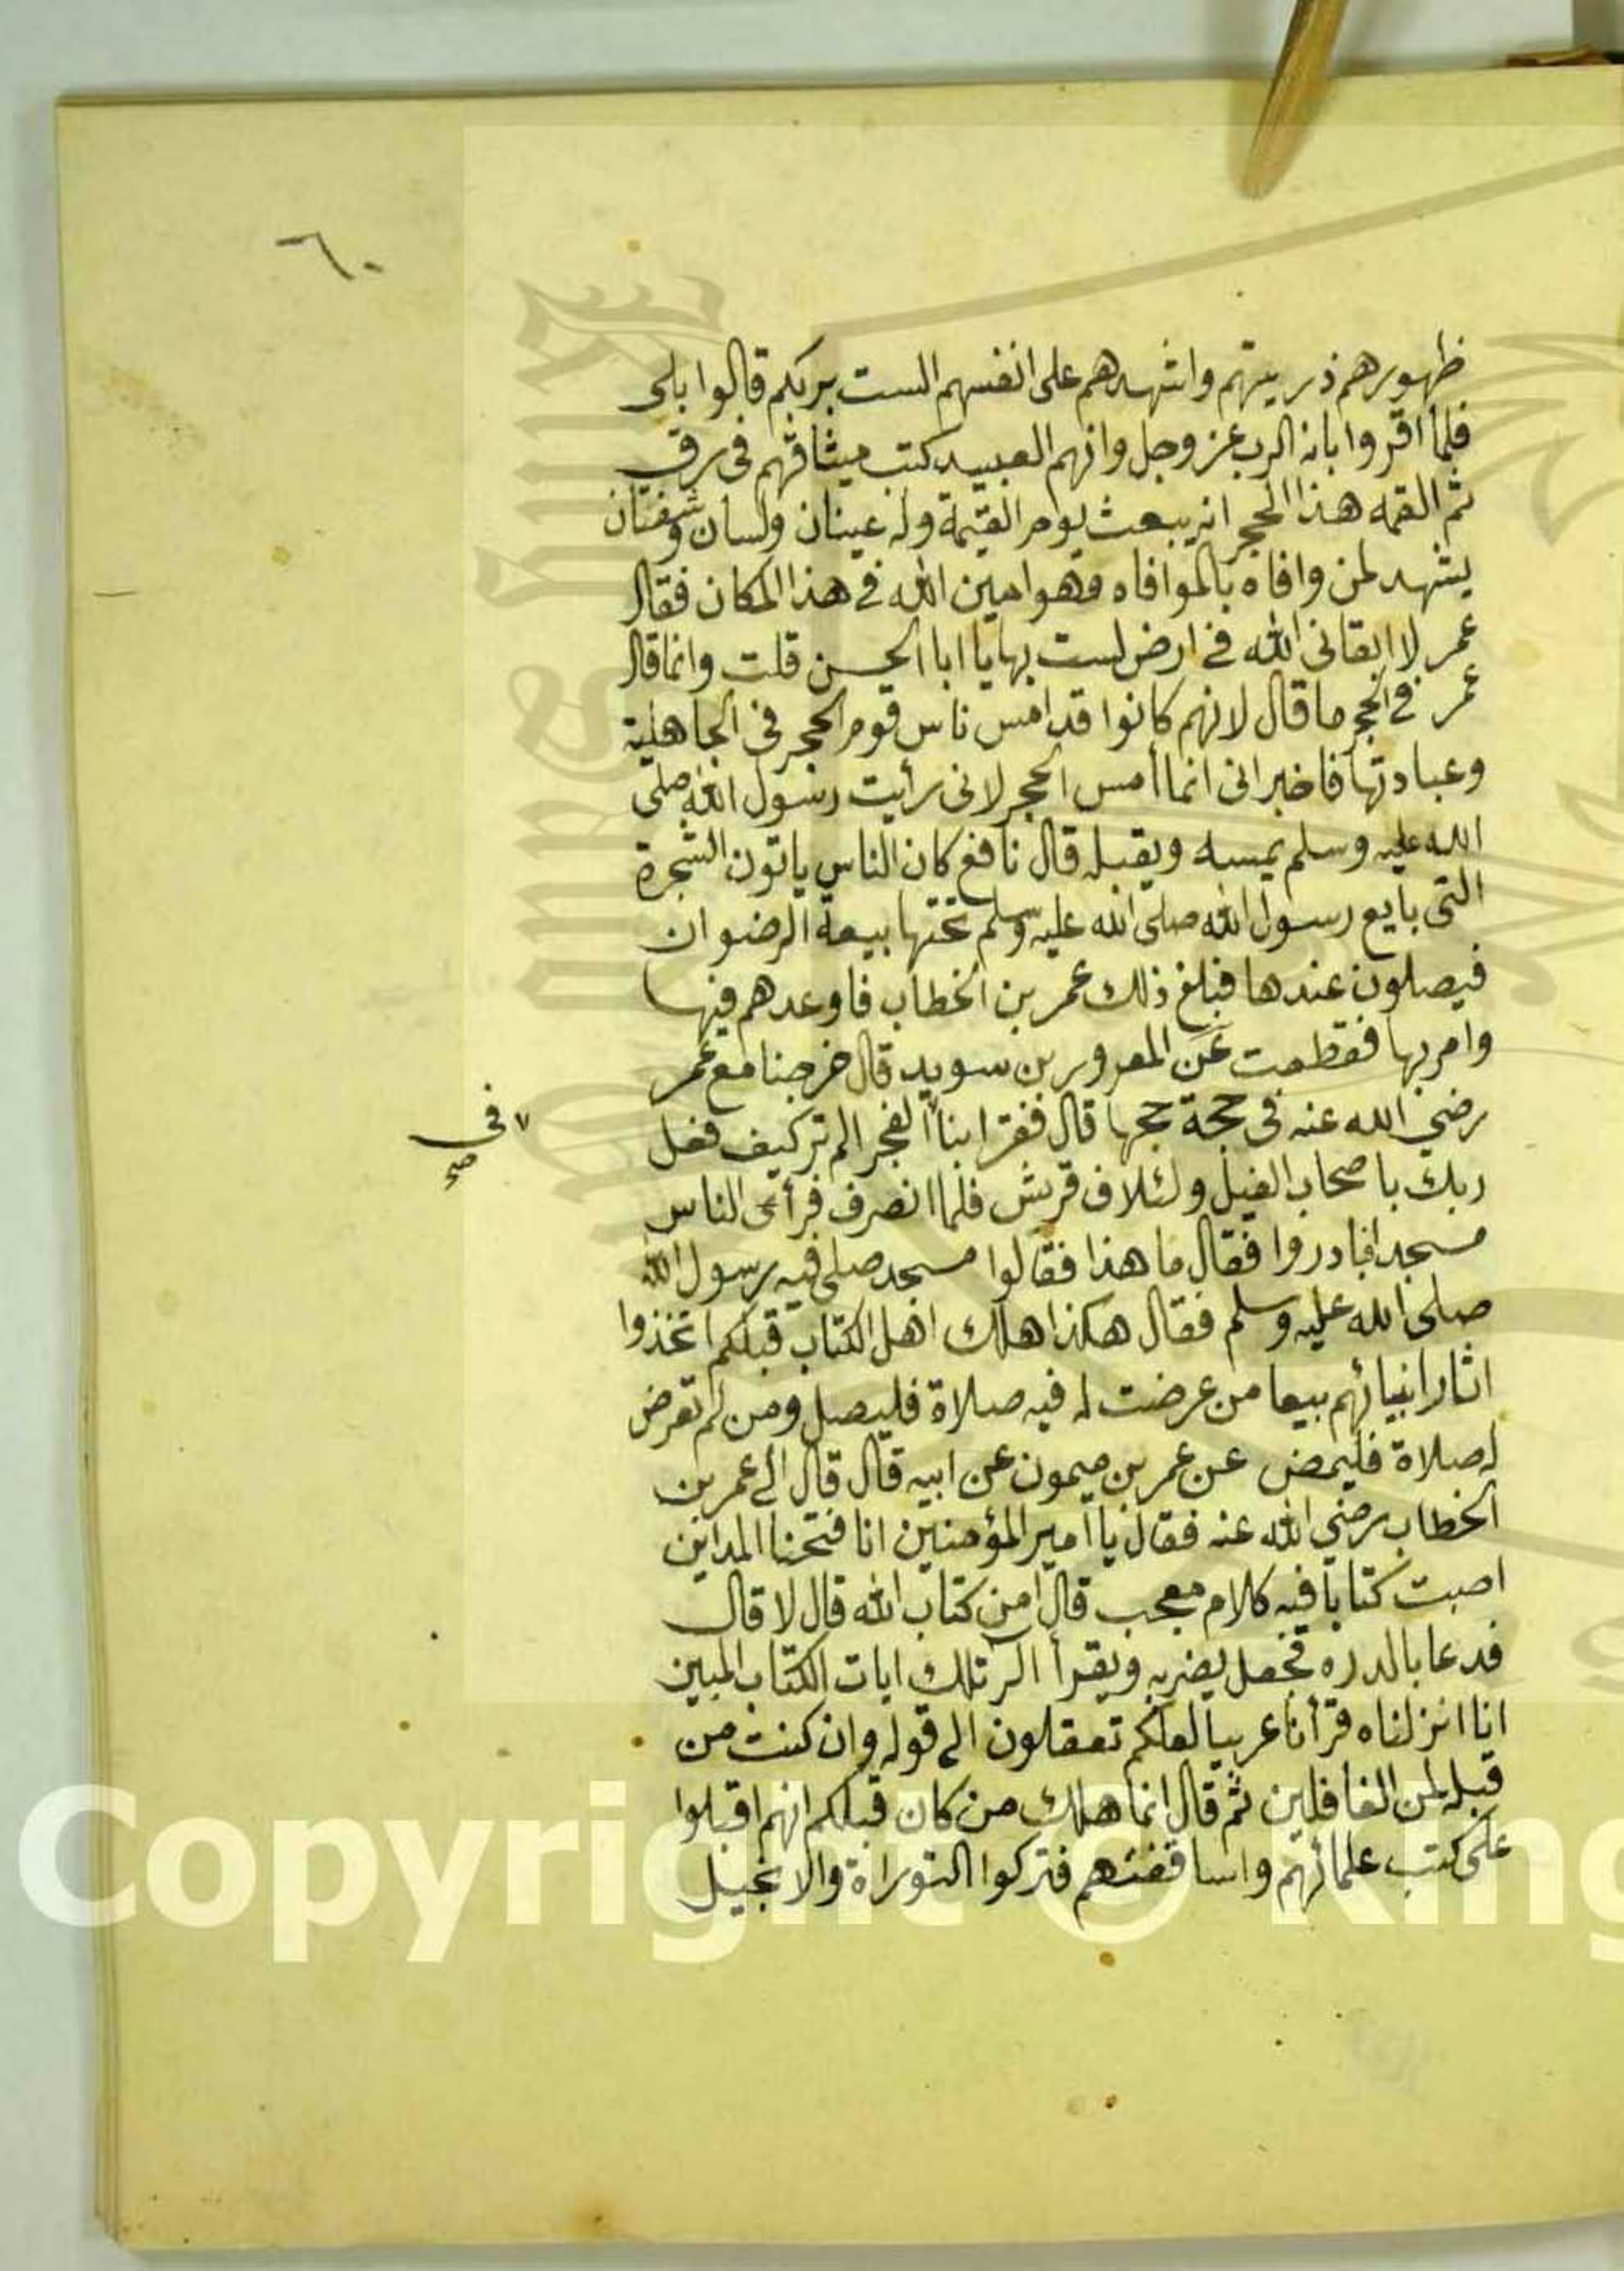 ٦٠
ظهورهم ذريتهم واشهدهم على انفسهم الست بربكم قالوا بلى
فلما اقروا بانه الرب عز وجل وانهم العبيد كتب ميثاقهم في رق
ثم القمه هذا الحجر انه يبعث يوم القيمة وله عينان ولسان وشفتان
يشهد لمن وافاه بالموافاه وهو امين الله في هذا المكان فقال
عمر لا ابقاني الله في ارض لست بها يا ابا الحسن قلت وانما قال
عمر في الحجر ما قال لانهم كانوا قد امس ناس قوم الحجر في الجاهلية
وعبادتها فاخبر اني انما أمس الحجر لاني رأيت رسول الله صلى
الله عليه وسلم يمسه ويقبله قال نافع كان الناس ياتون الشجرة
التي بايع رسول الله صلى الله عليه وسلم تحتها بيعة الرضوان
فيصلون عندها فبلغ ذلك عمر بن الخطاب فاوعدهم فيها
وامر بها فقطعت عن المعرور بن سويد قال خرجنا مع عمر
رضي الله عنه في حجة حجها قال فقرا بنا الفجر الم تر كيف فعل
٧ في
صح
ربك باصحاب الفيل ولئلاف قريش فلما انصرف فرأى الناس
مسجدا فبادروا فقال ما هذا فقالوا مسجد صلى فيه رسول الله
صلى الله عليه وسلم فقال هكذا هلك اهل الكتاب قبلكم اتخذوا
اثار انبيائهم بيعا من عرضت له فيه صلاة فليصل ومن لم تعرض
له صلاة فليمض عن عمر بن ميمون عن ابيه قال قال الي عمر بن
الخطاب رضي الله عنه فقال يا أمير المؤمنين انا فتحنا المداين
اصبت كتابا فيه كلام معجب قال امن كتاب الله قال لا قال
فدعا بالدره فجعل يضربه ويقرأ الر تلك ايات الكتاب المبين
انا انزلناه قرأنا عربيا لعلكم تعقلون الى قوله وان كنت من
قبله لمن الغافلين ثم قال انما هلك من كان قبلكم انهم اقبلوا
على كتب علمائهم واساقفتهم فتركوا التوراة والانجيل
Copyright © King